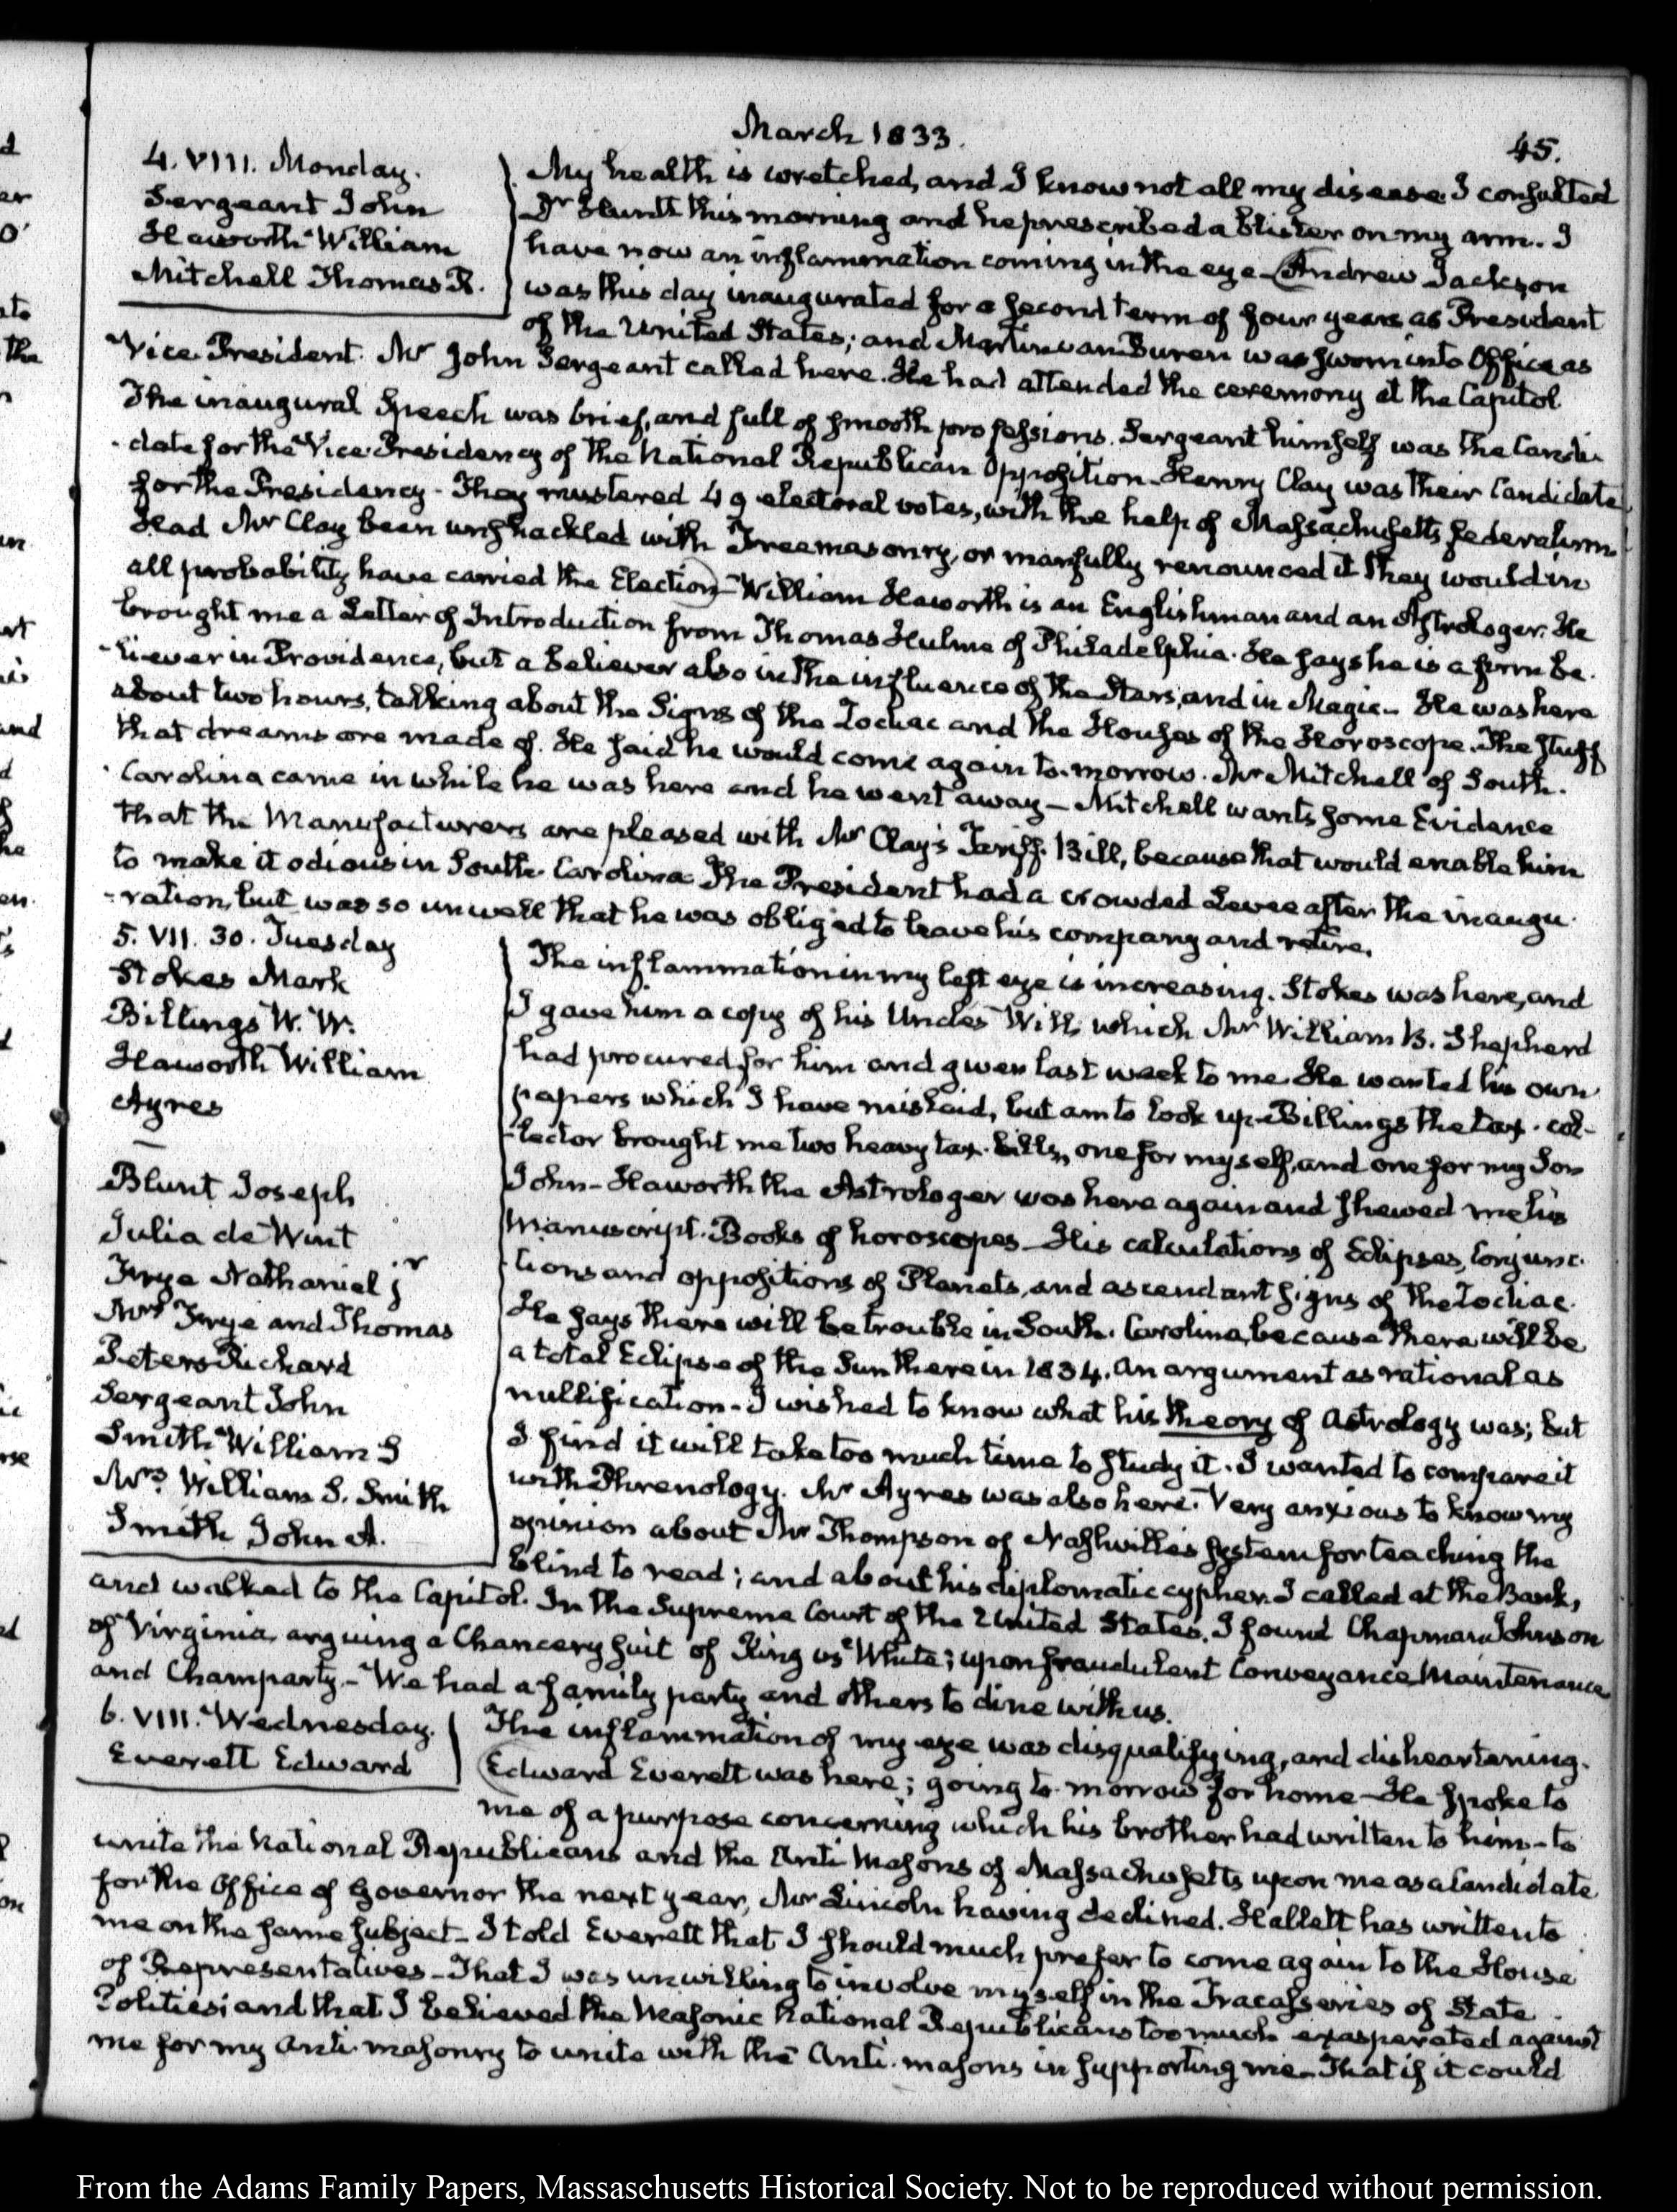 March 1833.
45.
4. VIII. Monday.
Sergeant John
Haworth William
Mitchell Thomas R.
My health is wretched, and I know not all my disease. I consulted
Dr Hunt this morning and he prescribed a blister on my arm. I
have now an inflammation coming in the eye. (Andrew Jackson
was this day inaugurated for a second term of four years as President
of the United States; and Martin van Buren was sworn into Office as
Vice President. Mr John Sergeant called here. He had attended the ceremony at the Capitol
The inaugural Speech was brief, and full of smooth professions. Sergeant himself was the Candi-
-date for the Vice Presidency of the National Republican Opposition. Henry Clay was their Candidate
for the Presidency - They mustered 49 electoral votes, with the help of Massachusetts federalism
Had Mr Clay been unshackled with Freemasonry, or manfully renounced it they would in
all probability have carried the Election) - William Haworth is an Englishman and an Astrologer. He
brought me a Letter of Introduction from Thomas Hulme of Philadelphia. He says he is a firm be-
-liever in Providence, but a believer also in the influence of the Stars, and in Magic - He was here
about two hours, talking about the Signs of the Zodiac and the Houses of the Horoscope. The stuff
that dreams are made of. He said he would come again to-morrow. Mr Mitchell of South-
-Carolina came in while he was here and he went away - Mitchell wants some Evidence
that the Manufacturers are pleased with Mr Clay's Tariff-Bill, because that would enable him
to make it odious in South-Carolina. The President had a crowded Levee after the inaugu-
-ration, but was so unwell that he was obliged to leave his company and retire.
5. VII. 30. Tuesday
Stokes Mark
Billings W. W.
Haworth William
Ayres
—
Blunt Joseph
Julia de Wint
Frye Nathaniel jr
Mrs Frye and Thomas
Peters Richard
Sergeant John
Smith William S
Mrs William S. Smith
Smith John A.
The inflammation in my left eye is increasing. Stokes was here, and
I gave him a copy of his Uncles Will, which Mr William B. Shepherd
had procured for him and given last week to me. He wanted his own
papers which I have mislaid, but am to look up - Billings the tax-col-
-lector brought me two heavy tax-bills, one for myself, and one for my Son
John - Haworth the Astrologer was here again and shewed me his
Manuscript-Books of horoscopes - His calculations of Eclipses, Conjunc-
-tions and oppositions of Planets, and ascendant signs of the Zodiac.
He says there will be trouble in South-Carolina, because there will be
a total Eclipse of the Sun there in 1834. An argument as rational as
nullification - I wished to know what his theory of Astrology was; but
I find it will take too much time to study it. I wanted to compare it
with Phrenology. Mr Ayres was also here. Very anxious to know my
opinion about Mr Thompson of Nashville's system for teaching the
blind to read; and about his diplomatic cypher. I called at the Bank,
and walked to the Capitol. In the Supreme Court of the United States, I found Chapman Johnson
of Virginia, arguing a Chancery suit of King vs White; upon fraudulent Conveyance, Maintenance
and Champarty - We had a family party and others to dine with us.
6. VIII. Wednesday.
Everett Edward
The inflammation of my eye was disqualifying, and disheartening.
(Edward Everett was here; going to-morrow for home - He spoke to
me of a purpose concerning which his brother had written to him - to
unite the National Republicans and the Anti Masons of Massachusetts upon me as a Candidate
for the Office of Governor the next year, Mr Lincoln having declined. Hallett has written to
me on the same subject - I told Everett that I should much prefer to come again to the House
of Representatives - That I was unwilling to involve myself in the Tracasseries of State
Politics; and that I believed the Masonic National Republicans too much exasperated against
me for my Anti-masonry to unite with the Anti-masons in supporting me - That if it could
From the Adams Family Papers, Massachusetts Historical Society. Not to be reproduced without permission.